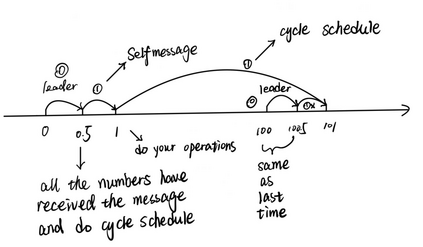 cycle schedule
Selfmessage
0
leader
1
1
0
leader
0x
0
0.5
1
100
100.5
101
do your operations
all the numbers have
received the message
and do cycle schedule
same
as
last
time